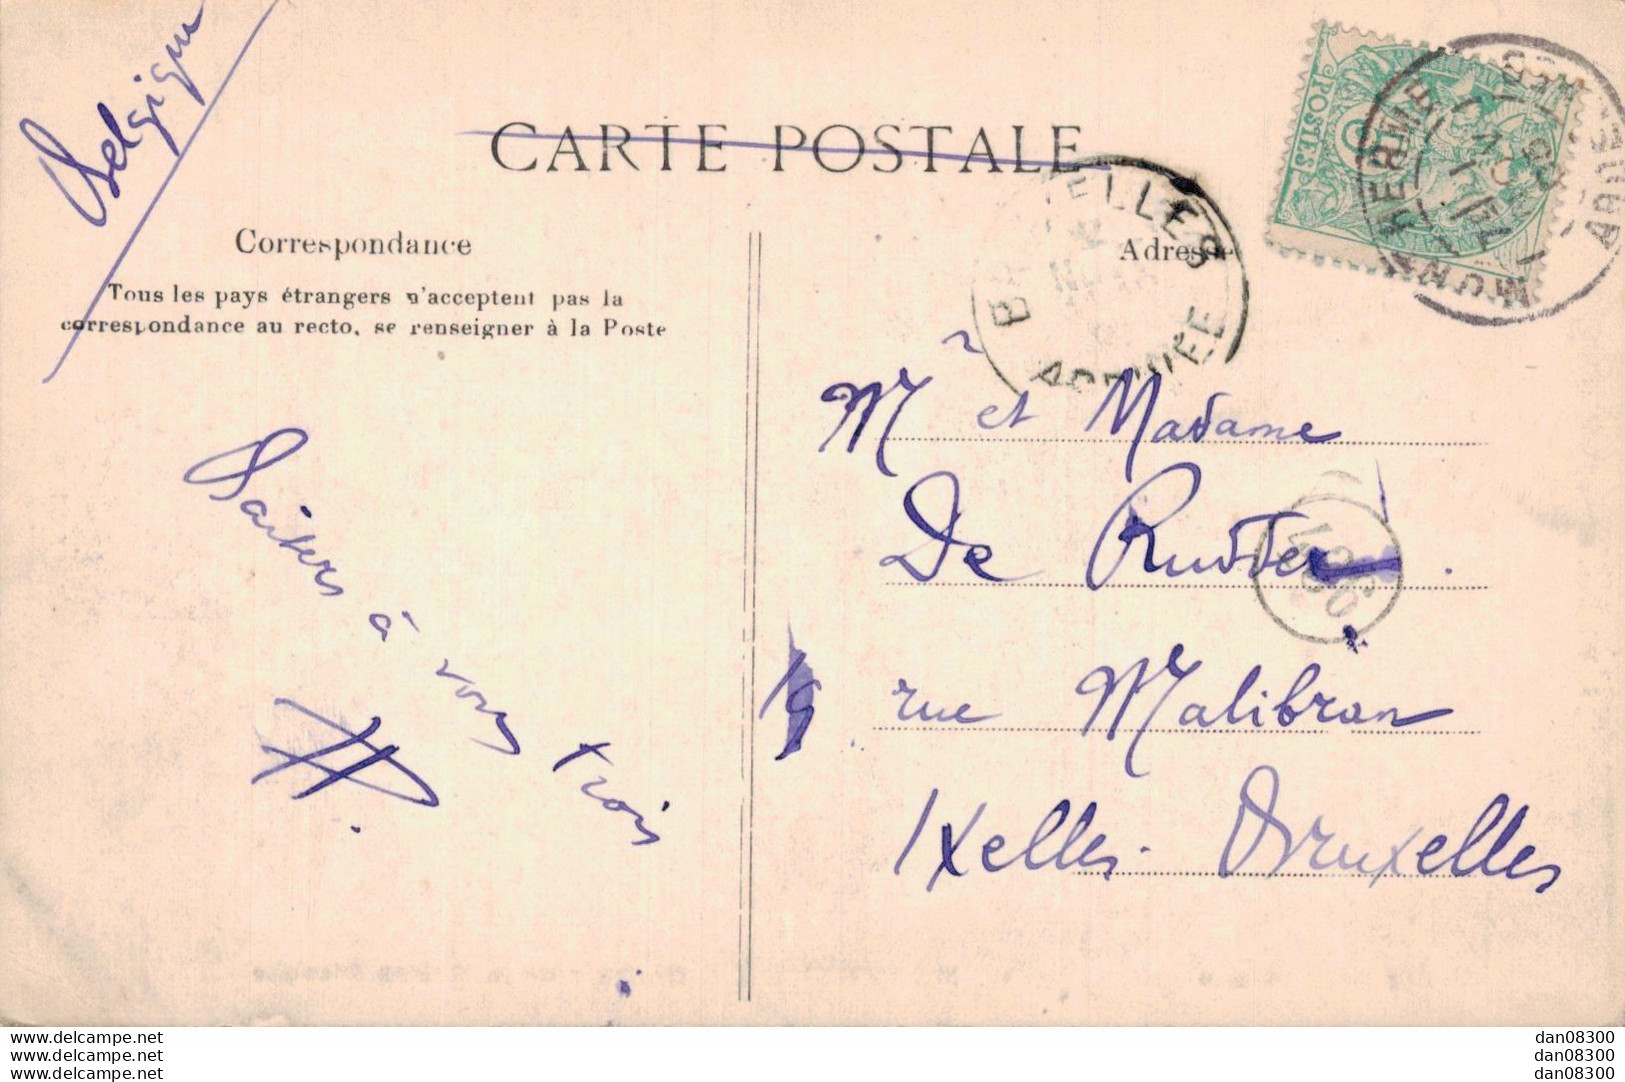 Belgique
CARTE POSTALE
Correspondance
Tous les pays étrangers n'acceptent pas la
correspondance au recto, se renseigner à la Poste
Baisers à vous trois
POSTES
BRUXELLES
ARRIVÉE
Adresse
Mr et Madame
De Rudder.
19 rue Malibran
Ixelles. Bruxelles
www.delcampe.net
www.delcampe.net
www.delcampe.net
dan08300
dan08300
dan08300